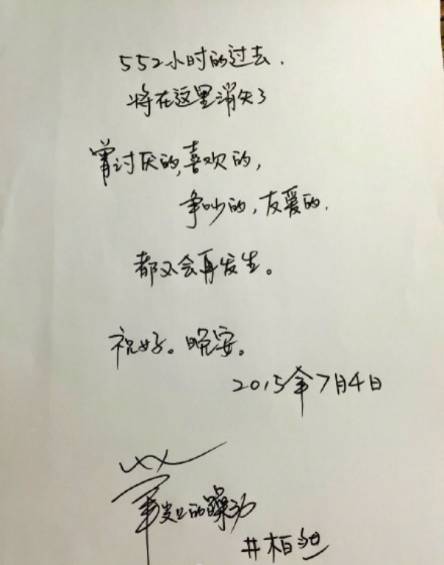 552小时的过去.
将在这里消失了
曾讨厌的,喜欢的,
争吵的,友爱的.
都又会再发生。
祝好。晚安。
2015年7月4日
的躁动
#柏